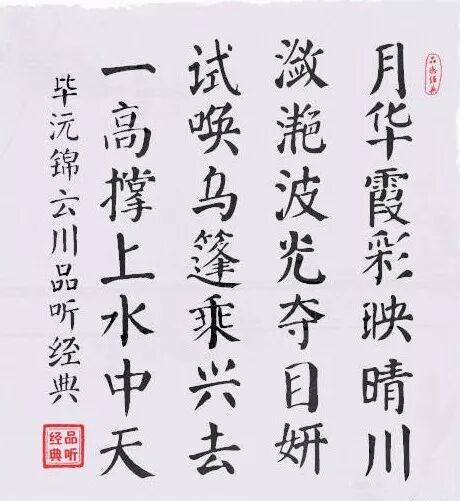 品听经典
月华霞彩映晴川
潋滟波光夺目妍
试唤乌篷乘兴去
一高撑上水中天
毕沅锦云川品听经典
品听经典